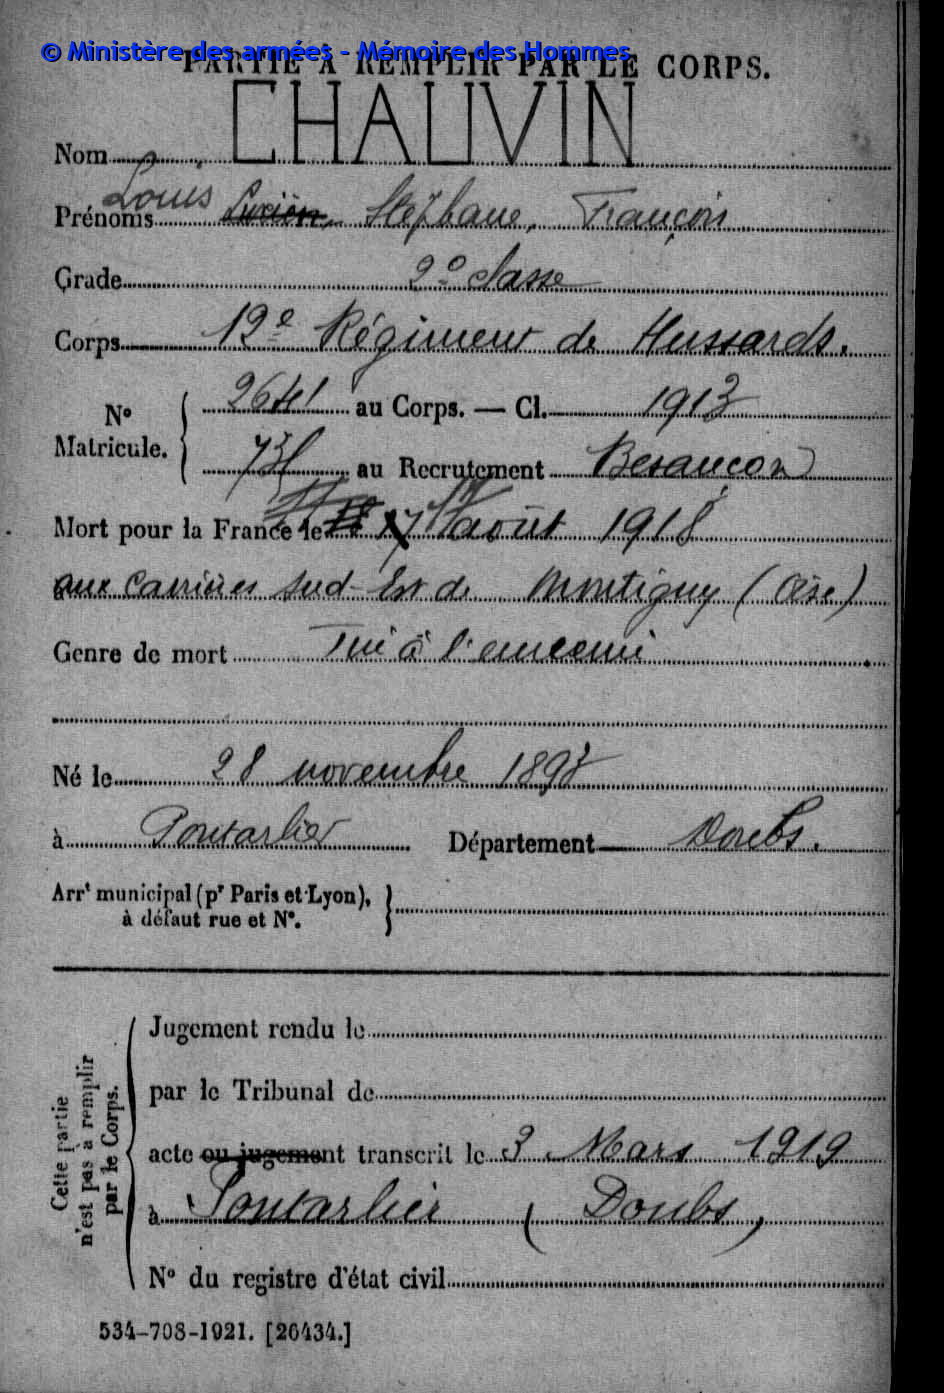 © Ministère des armées - Mémoire des Hommes
PARTIE À REMPLIR PAR LE CORPS.
Nom CHAUVIN
Louis
Prénoms Lucien, Stéphane, François
Grade 2e classe
Corps 12e Régiment de Hussards.
N° Matricule. 2641 au Corps. — Cl. 1913
au Recrutement Besançon
Mort pour la France le 17 août 1918
aux Carrières Sud-Est de Montigny (Oise)
Genre de mort Tué à l'ennemi
Né le 28 novembre 1893
à Pontarlier Département Doubs.
Arrt municipal (pr Paris et Lyon),
à défaut rue et N°.
Cette partie
n'est pas à remplir
par le Corps.
Jugement rendu le
par le Tribunal de
acte ou jugement transcrit le 3 Mars 1919
à Pontarlier (Doubs)
N° du registre d'état civil
534-708-1921. [26434.]